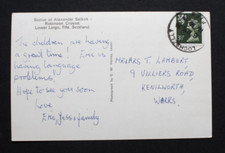 Statue of Alexander Selkirk
Robinson Crusoe,
Lower Largo, Fife, Scotland.
The children are having
a great time! Eric is
having language
problems!
Hope to see you soon
Love
Eric, &family
MR & MRS T LAMBERT
9 VILLIERS ROAD
KENILWORTH
WARKS.